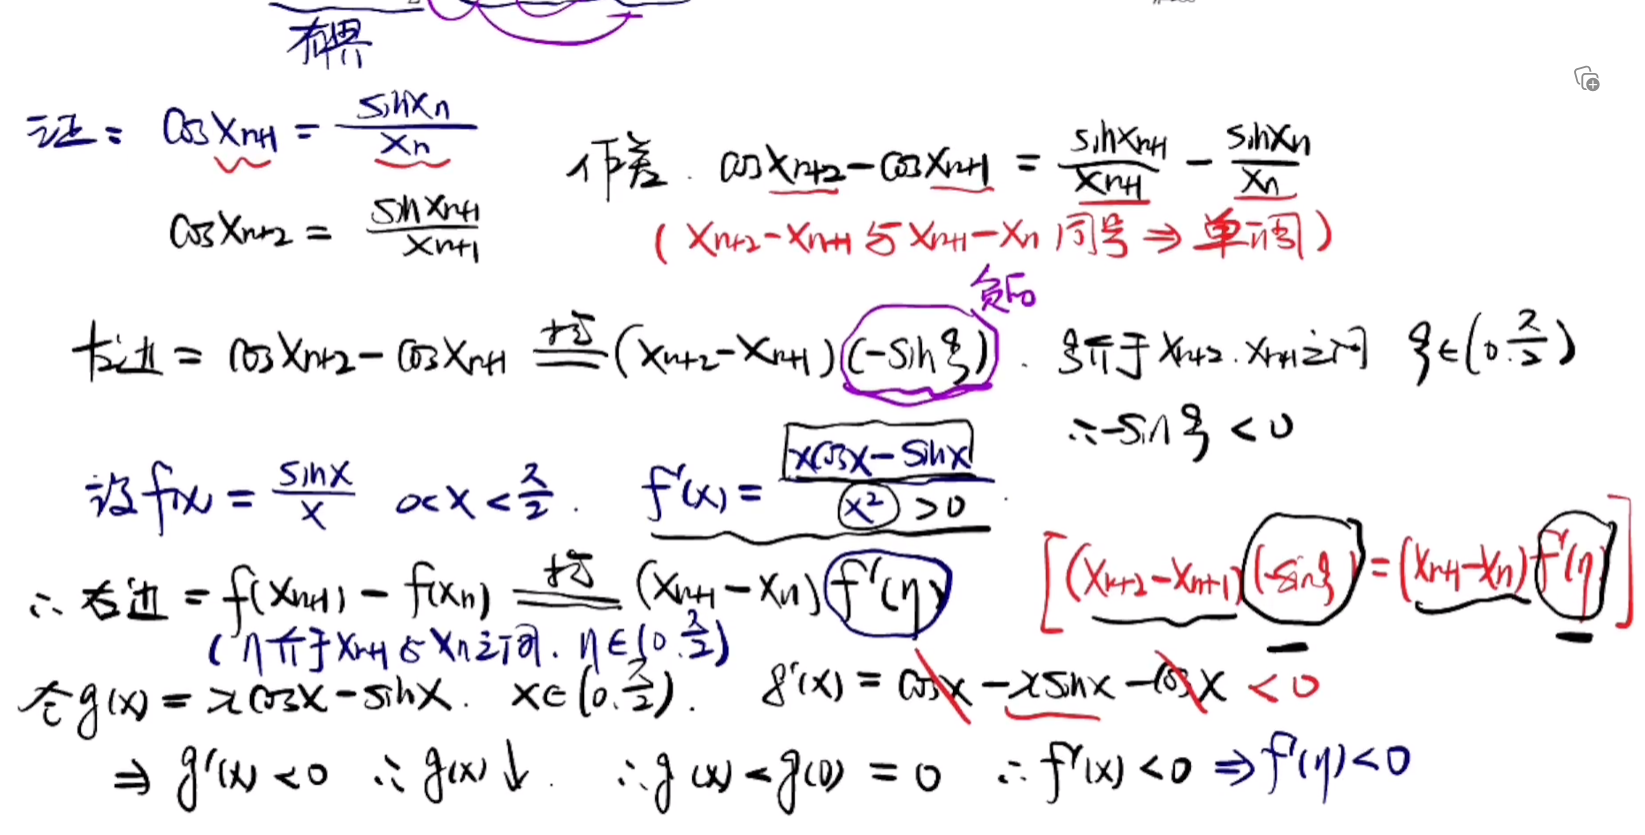 有界
证: cos xₙ₊₁ = sin xₙ / xₙ
cos xₙ₊₂ = sin xₙ₊₁ / xₙ₊₁
作差. cos xₙ₊₂ - cos xₙ₊₁ = sin xₙ₊₁ / xₙ₊₁ - sin xₙ / xₙ
(xₙ₊₂ - xₙ₊₁ 与 xₙ₊₁ - xₙ 同号 ⇒ 单调)
负的
左边 = cos xₙ₊₂ - cos xₙ₊₁ 拉 = (xₙ₊₂ - xₙ₊₁)(-sin ξ). ξ介于 xₙ₊₂. xₙ₊₁之间 ξ∈(0. π/2)
∴ -sin ξ < 0
设 f(x) = sin x / x 0 < x < π/2. f'(x) = (x cos x - sin x) / x² > 0.
∴ 右边 = f(xₙ₊₁) - f(xₙ) 拉 = (xₙ₊₁ - xₙ) f'(η)
[(xₙ₊₂ - xₙ₊₁)(-sin ξ) = (xₙ₊₁ - xₙ) f'(η)]
(η介于 xₙ₊₁ 与 xₙ之间. η∈(0. π/2)
令 g(x) = x cos x - sin x. x∈(0. π/2). g'(x) = cos x - x sin x - cos x < 0
⇒ g'(x) < 0 ∴ g(x)↓. ∴ g(x) < g(0) = 0 ∴ f'(x) < 0 ⇒ f'(η) < 0